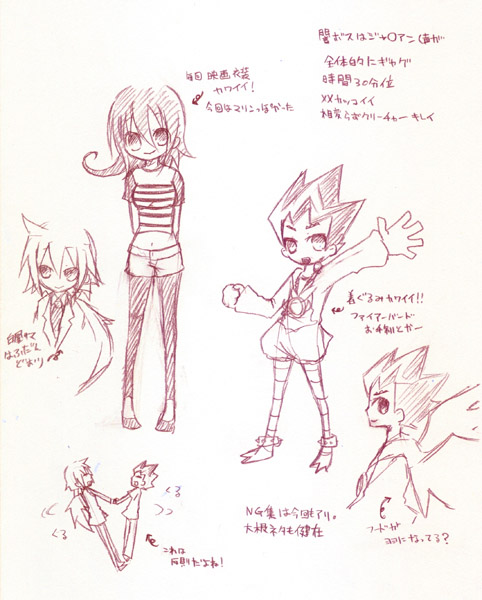 闇ボスはジャ○アン(声が
全体的にギャグ
時間30分位
××カッコイイ
相変らずクリーチャーキレイ
毎回映画衣装
カワイイ!
今回はマリンっぽかった
着ぐるみカワイイ!!
ファイアーバード
お手製とかー
白凰サマ
はふだん
どおり
くる
くる
これは
反則だよね!
NG集は今回もアリ。
大根ネタも健在
フードが
羽になってる?